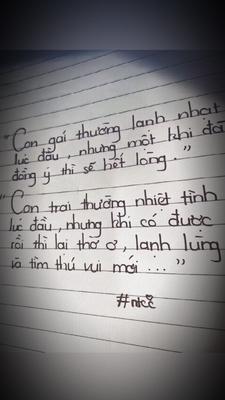 "Con gái thường lạnh nhạt
lúc đầu, nhưng một khi đã
đồng ý thì sẽ hết lòng."
"Con trai thường nhiệt tình
lúc đầu, nhưng khi có được
rồi thì lại thờ ơ, lạnh lùng
và tìm thú vui mới..."